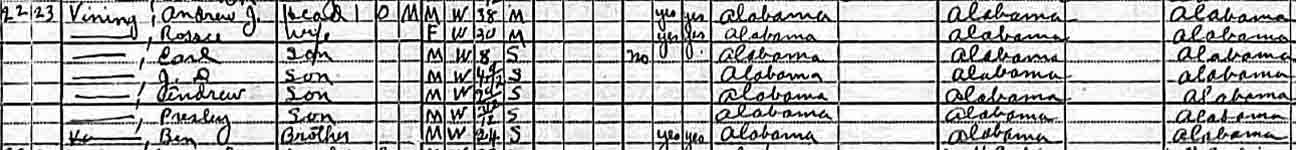 22 23 Vining, Andrew J. Head 1 O M M W 38 M yes yes Alabama Alabama Alabama
——, Rossie Wife F W 30 M yes yes Alabama Alabama Alabama
——, Earl Son M W 8 S no Alabama Alabama Alabama
——, J. D Son M W S Alabama Alabama Alabama
——, Andrew Son M W S Alabama Alabama Alabama
——, Presley Son M W S Alabama Alabama Alabama
——, Ben Brother M W 24 S yes yes Alabama Alabama Alabama